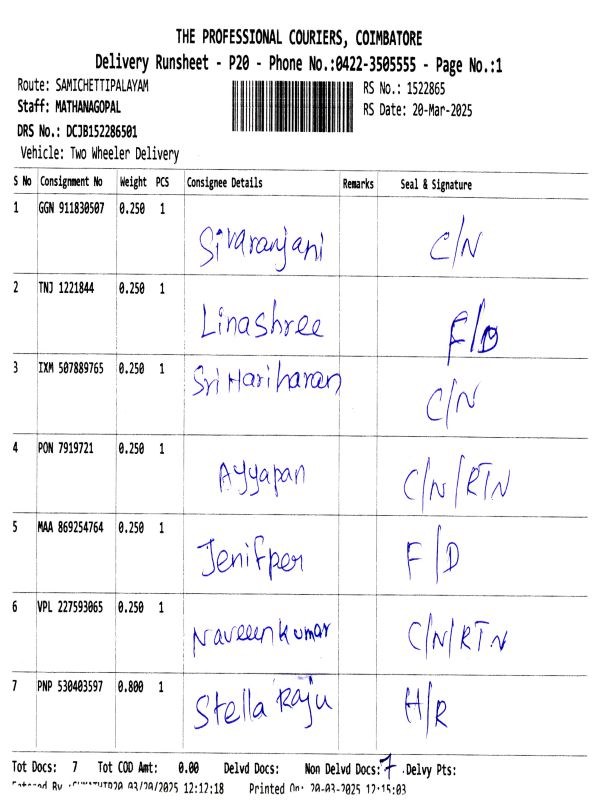 THE PROFESSIONAL COURIERS, COIMBATORE
Delivery Runsheet - P20 - Phone No.:0422-3505555 - Page No.:1
Route: SAMICHETTIPALAYAM RS No.: 1522865
Staff: MATHANAGOPAL RS Date: 20-Mar-2025
DRS No.: DCJB152286501
Vehicle: Two Wheeler Delivery
S No Consignment No Weight PCS Consignee Details Remarks Seal & Signature
1 GGN 911830507 0.250 1
Sivaranjani C/N
2 TNJ 1221844 0.250 1
Linashree F/D
3 IXM 507889765 0.250 1
Sri Hariharan C/N
4 PON 7919721 0.250 1
Ayyapan C/N/RTN
5 MAA 869254764 0.250 1
Jenifper F/D
6 VPL 227593065 0.250 1
Naveeenkumar C/N/RTN
7 PNP 530403597 0.800 1
Stella Raju H/R
Tot Docs: 7 Tot COD Amt: 0.00 Delvd Docs: Non Delvd Docs: 7 Delvy Pts:
03/20/2025 12:12:18 Printed On: 20-03-2025 12:15:03